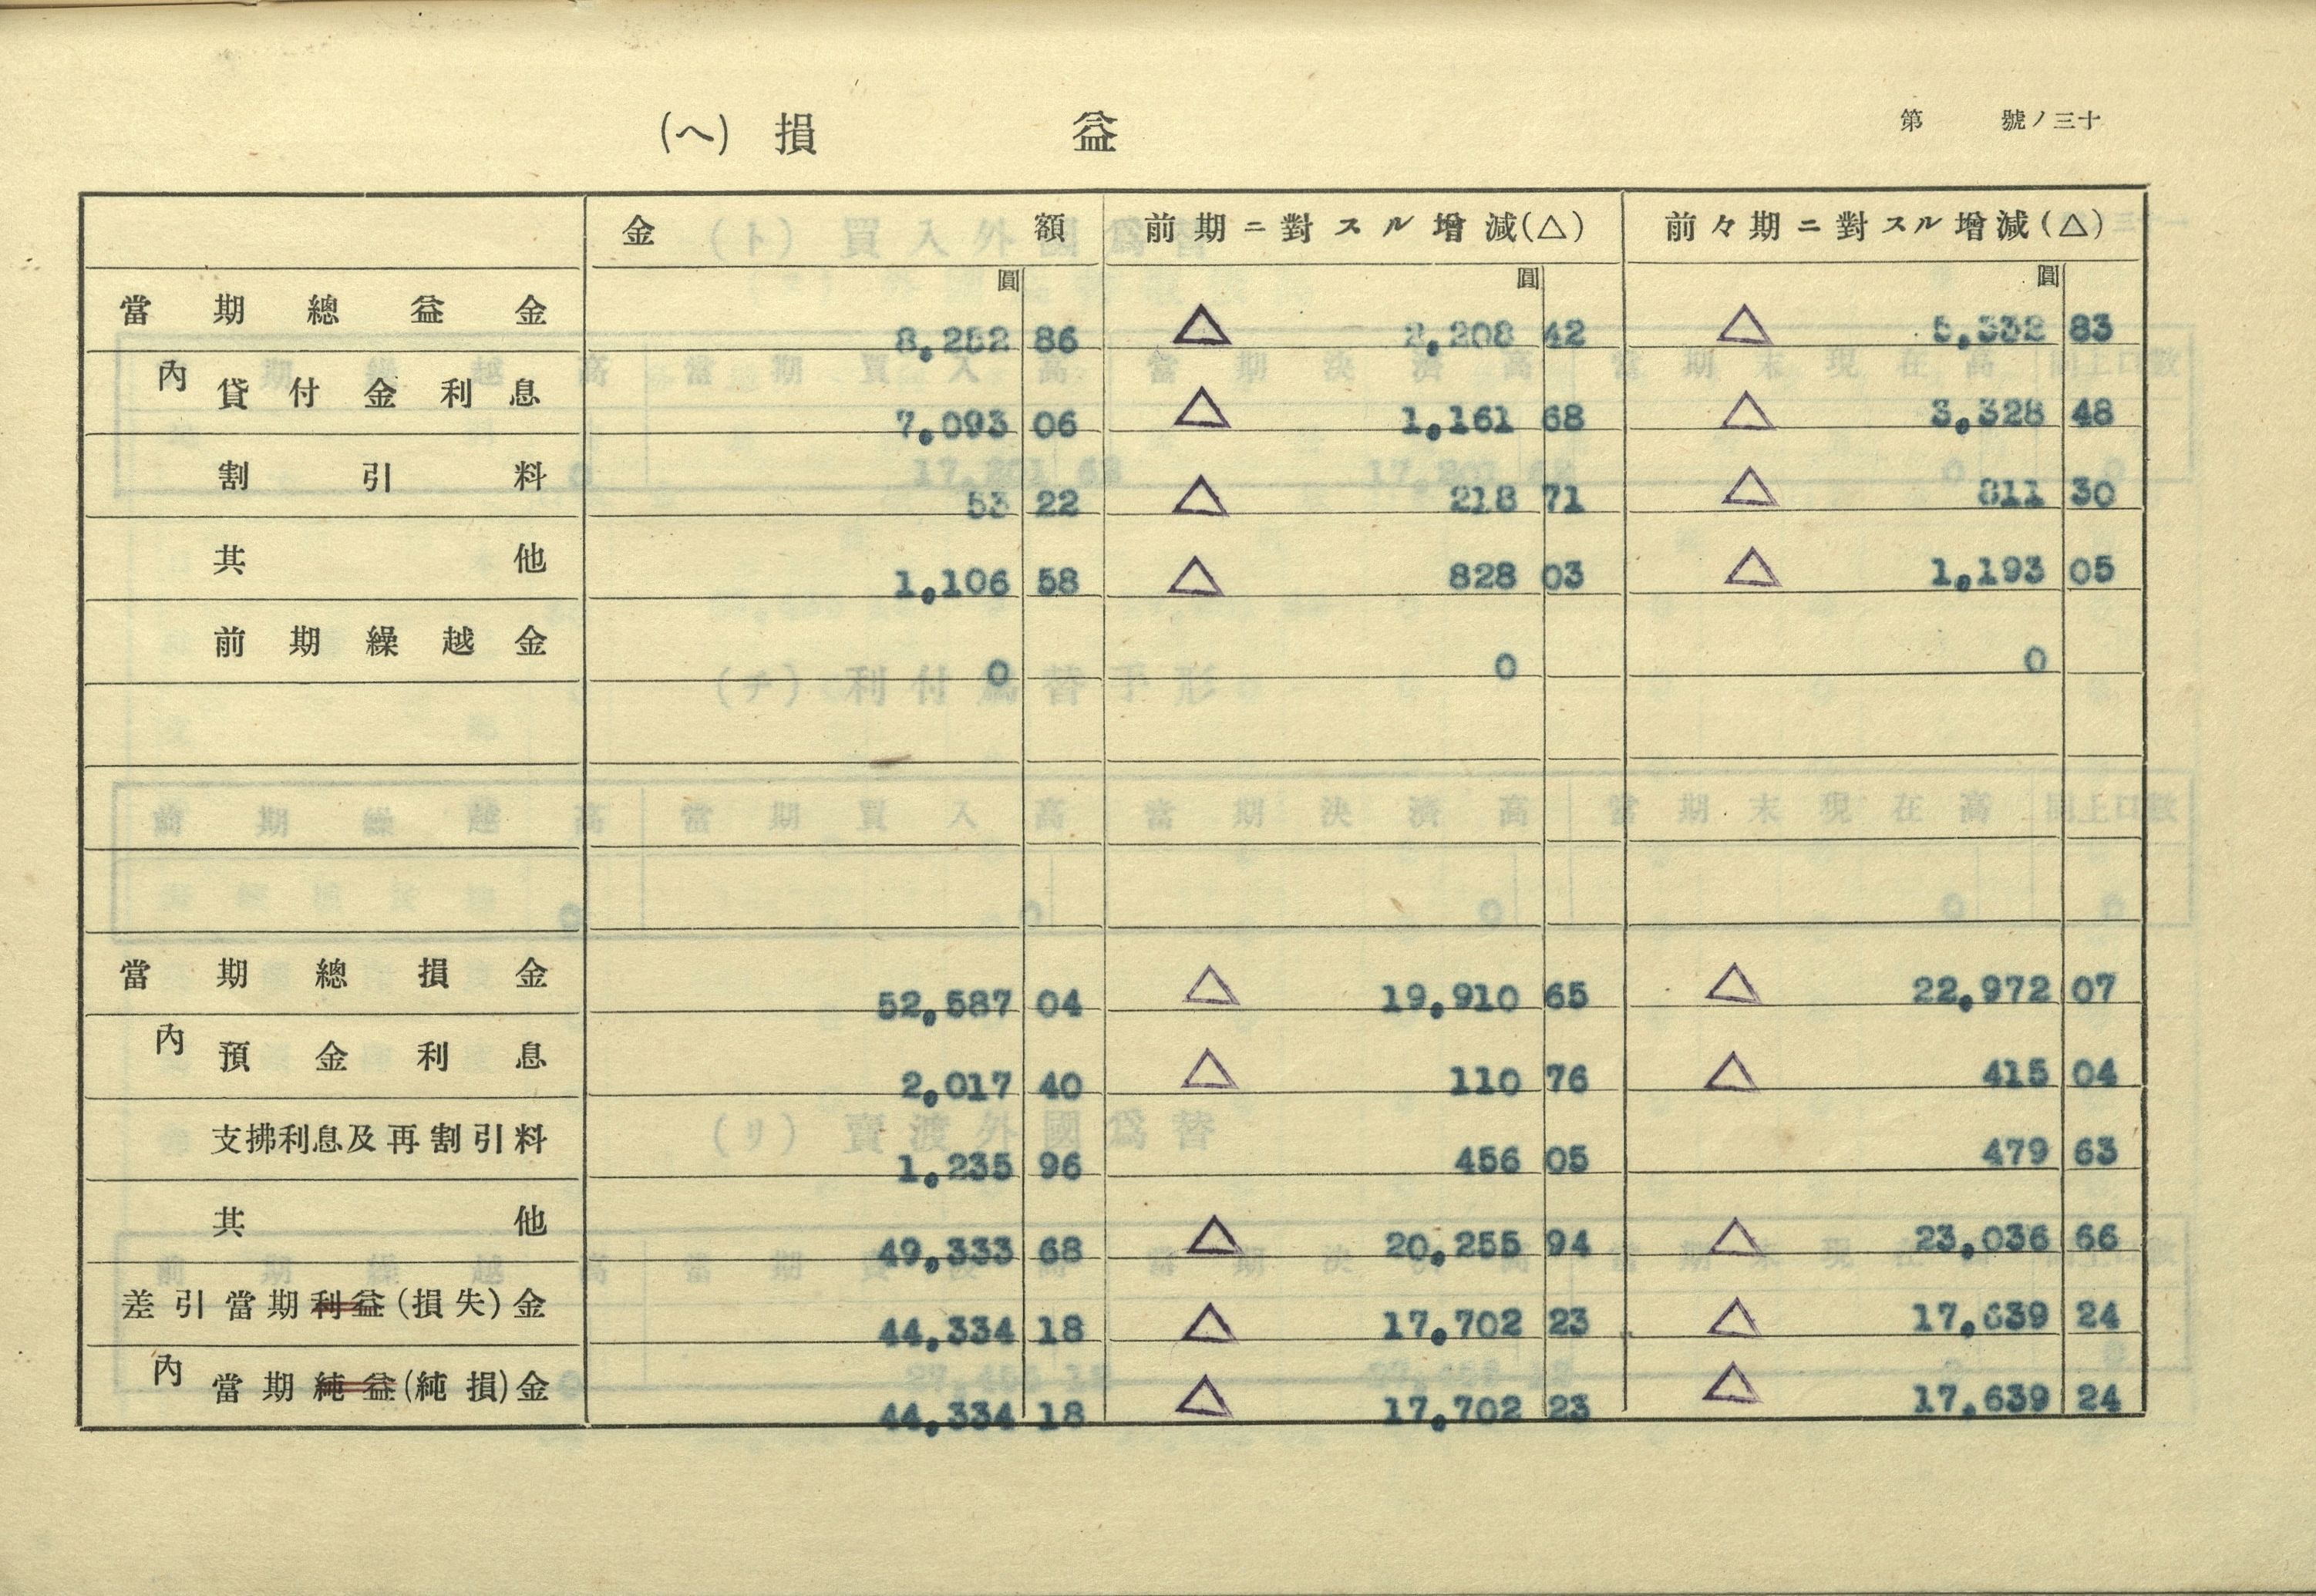 第 號ノ三十
(ヘ) 損 益
金 額 前期ニ對スル增減(△) 前々期ニ對スル增減(△)
圓 圓 圓
當期總益金 8,252 86 △ 2,208 42 △ 5,332 83
內 貸付金利息 7,093 06 △ 1,161 68 △ 3,328 48
割引料 53 22 △ 218 71 △ 811 30
其他 1,106 58 △ 828 03 △ 1,193 05
前期繰越金 0 0 0
當期總損金 52,587 04 △ 19,910 65 △ 22,972 07
內 預金利息 2,017 40 △ 110 76 △ 415 04
支拂利息及再割引料 1,235 96 456 05 479 63
其他 49,333 68 △ 20,255 94 △ 23,036 66
差引當期利益(損失)金 44,334 18 △ 17,702 23 △ 17,639 24
內 當期純益(純損)金 44,334 18 △ 17,702 23 △ 17,639 24